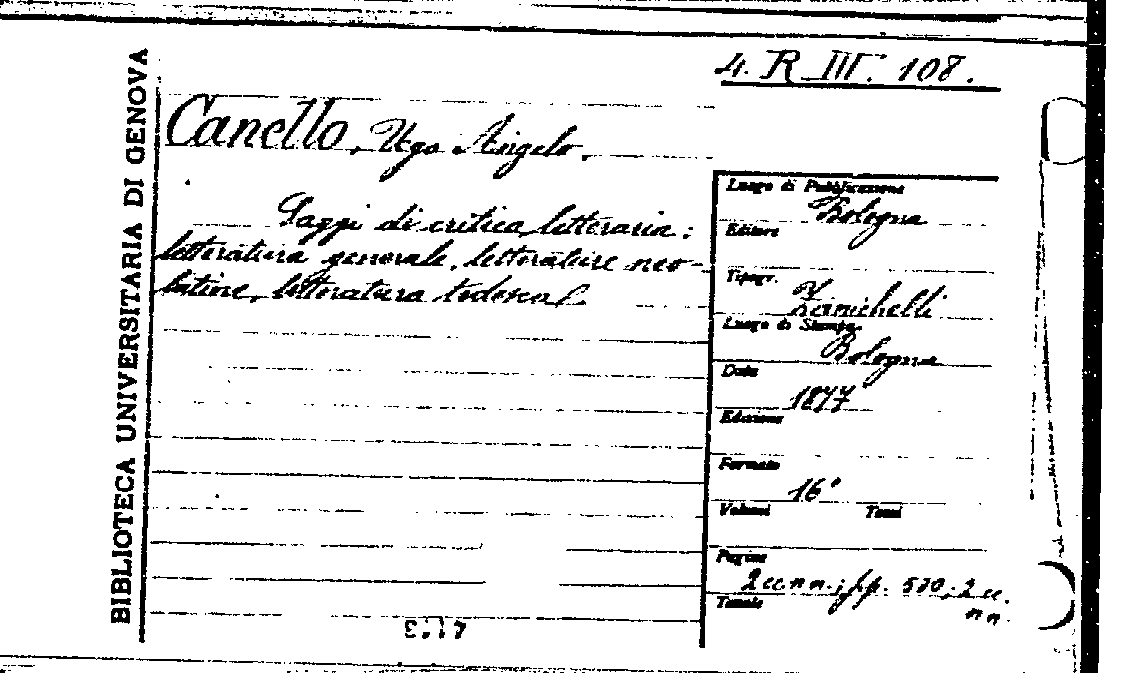 4. R. III. 108.
BIBLIOTECA UNIVERSITARIA DI GENOVA
Canello, Ugo Angelo.
Saggi di critica letteraria:
letteratura generale, letterature neo-
latine, letteratura tedesca.
Luogo di Pubblicazione
Bologna
Editore
Tipogr.
Zanichelli
Luogo di Stampa
Bologna
Data
1877
Edizione
Formato
16°
Volumi Tomi
Pagine
2 cc. nn.; pp. 510; 2 cc.
nn.
Tavole